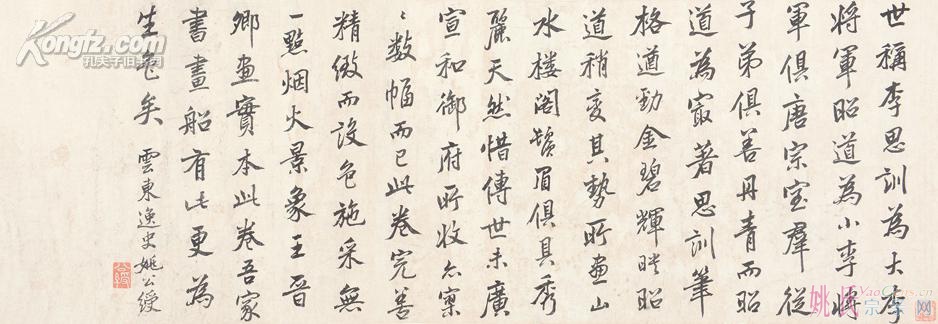 世稱李思訓為大李
將軍昭道為小李將
軍俱唐宗室羣從
子弟俱善丹青而昭
道為冣著思訓筆
格遒勁金碧輝映昭
道稍變其勢所畫山
水樓閣鬚眉俱具秀
麗天然惜傳世未廣
宣和御府所收亦寥
〻數幅而已此卷完善
精緻而設色施采無
一點烟火景象王晉
卿画實本此卷吾家
書畫船有此更為
生色矣
雲東逸史姚公綬
Kongfz.com
孔夫子旧书网
姚氏宗亲网